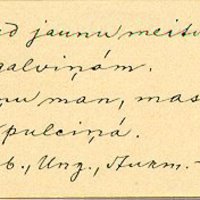 jaunu meitu
galviņām.
man, mas
pulciņā.
b., Ung., Aurm. -